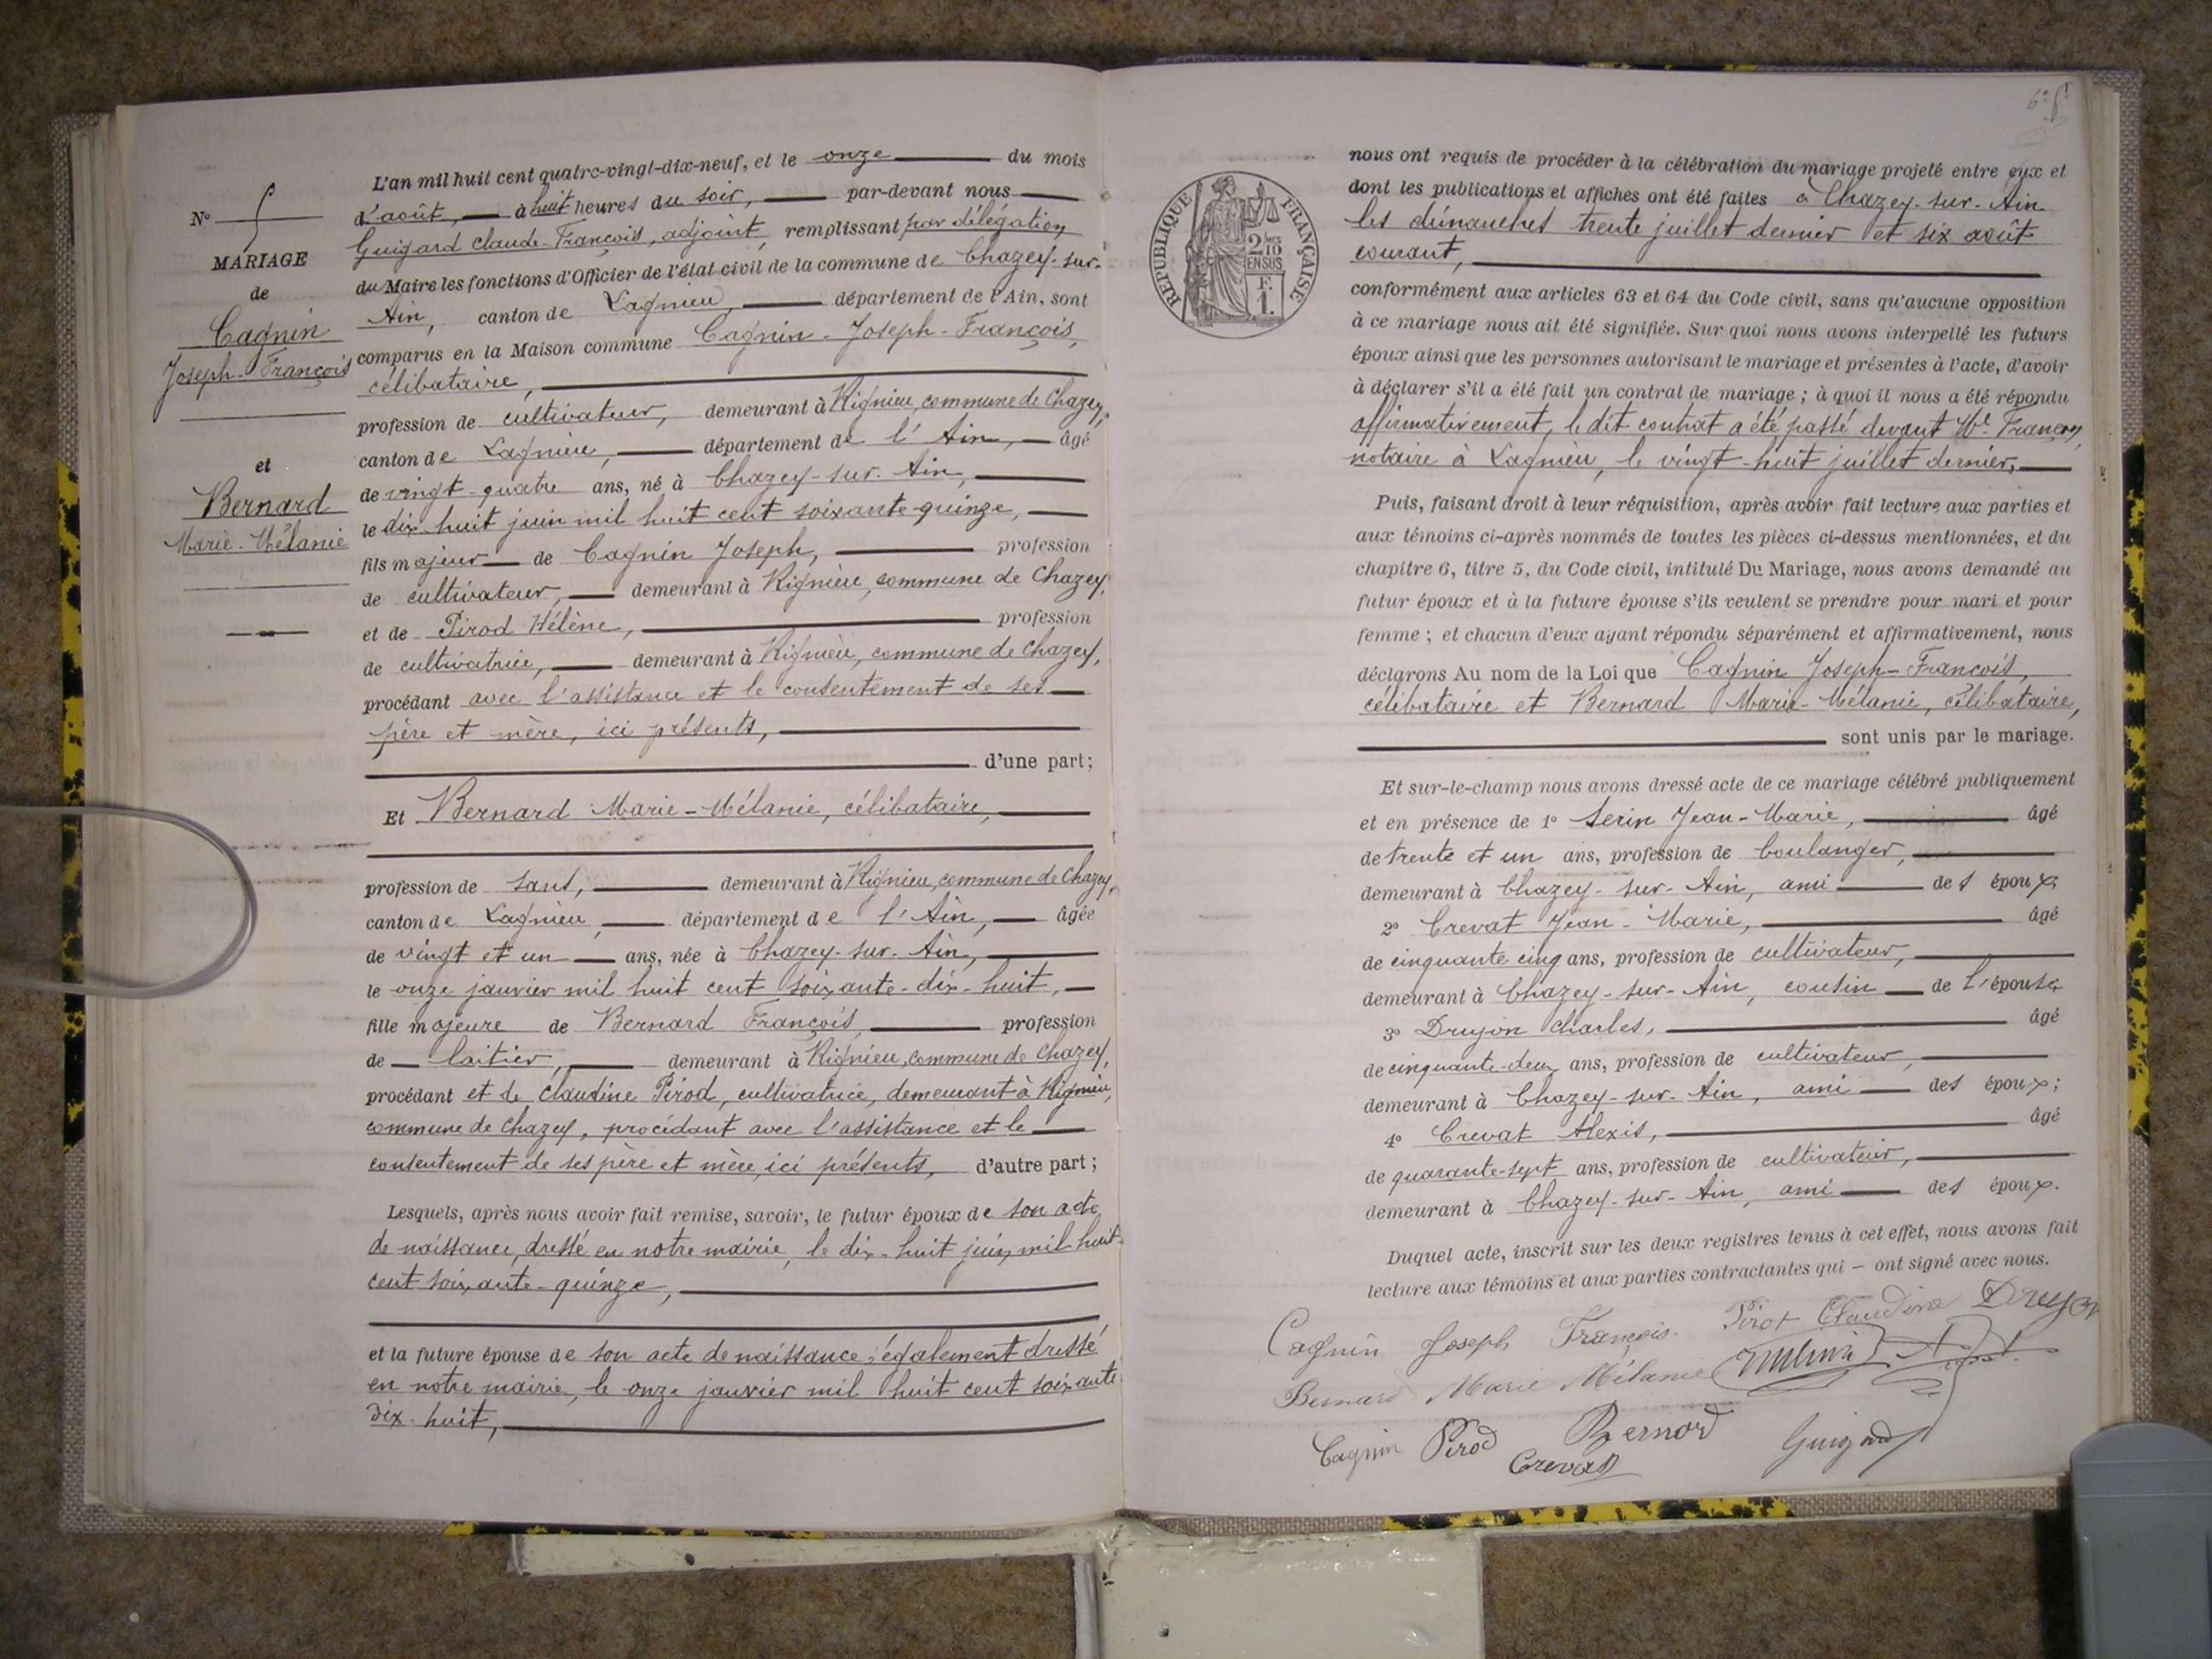 N°
MARIAGE
de
Cagnin
Joseph-François
et
Bernard
Marie-Mélanie
L'an mil huit cent quatre-vingt-dix-neuf, et le onze du mois
d'août, à huit heures du soir, par-devant nous
Guigard Claude-François, adjoint, remplissant par délégation
du Maire les fonctions d'Officier de l'état civil de la commune de Chazey-sur-
Ain, canton de Lagnieu, département de l'Ain, sont
comparus en la Maison commune Cagnin-Joseph-François,
célibataire,
profession de cultivateur, demeurant à Rignieu, commune de Chazey,
canton de Lagnieu, département de l'Ain, âgé
de vingt-quatre ans, né à Chazey-sur-Ain,
le dix-huit juin mil huit cent soixante-quinze,
fils majeur de Cagnin Joseph, profession
de cultivateur, demeurant à Rignieu, commune de Chazey,
et de Pirod Hélène, profession
de cultivatrice, demeurant à Rignieu, commune de Chazey,
procédant avec l'assistance et le consentement de ses
père et mère, ici présents,
d'une part;
Et Bernard Marie-Mélanie, célibataire,
profession de sans, demeurant à Rignieu, commune de Chazey,
canton de Lagnieu, département de l'Ain, âgée
de vingt et un ans, née à Chazey-sur-Ain,
le onze janvier mil huit cent soixante-dix-huit,
fille majeure de Bernard François, profession
de laitier, demeurant à Rignieu, commune de Chazey,
procédant et de Claudine Pirod, cultivatrice, demeurant à Rignieu,
commune de Chazey, procédant avec l'assistance et le
consentement de ses père et mère, ici présents, d'autre part;
Lesquels, après nous avoir fait remise, savoir, le futur époux de son acte
de naissance, dressé en notre mairie, le dix-huit juin mil huit
cent soixante-quinze,
et la future épouse de son acte de naissance, également dressé
en notre mairie, le onze janvier mil huit cent soixante
dix-huit,
RÉPUBLIQUE FRANÇAISE
2/10
EN SUS
F.
1.
nous ont requis de procéder à la célébration du mariage projeté entre eux et
dont les publications et affiches ont été faites à Chazey-sur-Ain
les dimanches trente juillet dernier et six août
courant,
conformément aux articles 63 et 64 du Code civil, sans qu'aucune opposition
à ce mariage nous ait été signifiée. Sur quoi nous avons interpellé les futurs
époux ainsi que les personnes autorisant le mariage et présentes à l'acte, d'avoir
à déclarer s'il a été fait un contrat de mariage; à quoi il nous a été répondu
affirmativement, le dit contrat a été passé devant Me Françon,
notaire à Lagnieu, le vingt-huit juillet dernier,
Puis, faisant droit à leur réquisition, après avoir fait lecture aux parties et
aux témoins ci-après nommés de toutes les pièces ci-dessus mentionnées, et du
chapitre 6, titre 5, du Code civil, intitulé Du Mariage, nous avons demandé au
futur époux et à la future épouse s'ils veulent se prendre pour mari et pour
femme; et chacun d'eux ayant répondu séparément et affirmativement, nous
déclarons Au nom de la Loi que Cagnin Joseph-François,
célibataire et Bernard Marie-Mélanie, célibataire,
sont unis par le mariage.
Et sur-le-champ nous avons dressé acte de ce mariage célébré publiquement
et en présence de 1° Serin Jean-Marie, âgé
de trente et un ans, profession de boulanger,
demeurant à Chazey-sur-Ain, ami des époux;
2° Crevat Jean-Marie, âgé
de cinquante cinq ans, profession de cultivateur,
demeurant à Chazey-sur-Ain, cousin de l'épouse;
3° Drujon Charles, âgé
de cinquante-deux ans, profession de cultivateur,
demeurant à Chazey-sur-Ain, ami des époux;
4° Crevat Alexis, âgé
de quarante-sept ans, profession de cultivateur,
demeurant à Chazey-sur-Ain, ami des époux.
Duquel acte, inscrit sur les deux registres tenus à cet effet, nous avons fait
lecture aux témoins et aux parties contractantes qui – ont signé avec nous.
Cagnin Joseph François. Pirot Claudine Drujon
Bernard Marie Mélanie
Cagnin Pirod Bernard Guigard
Crevat